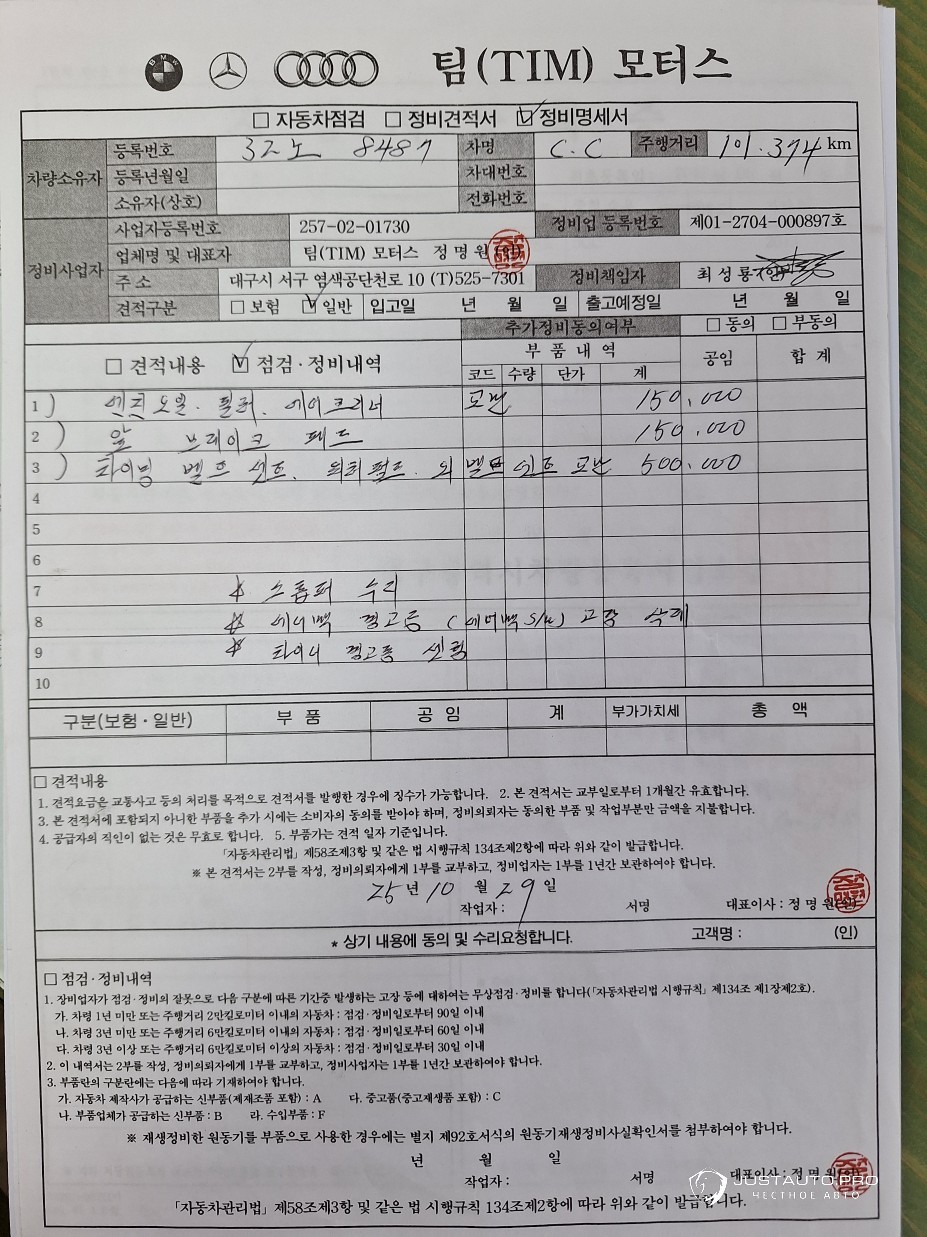 BMW
팀(TIM) 모터스
□ 자동차점검 □ 정비견적서 ☑ 정비명세서
차량소유자
등록번호 32노 8487 차명 C.C 주행거리 101.374 km
등록년월일 차대번호
소유자(상호) 전화번호
정비사업자
사업자등록번호 257-02-01730 정비업 등록번호 제01-2704-000897호
업체명 및 대표자 팀(TIM) 모터스 정명원 (인)
주소 대구시 서구 염색공단천로 10 (T)525-7301 정비책임자 최성룡 (인)
견적구분 □ 보험 ☑ 일반 입고일 년 월 일 출고예정일 년 월 일
추가정비동의여부 □ 동의 □ 부동의
□ 견적내용 ☑ 점검·정비내역 부품내역 공임 합계
코드 수량 단가 계
1) 엔진오일. 필터. 에어크리너 교환 150.000
2) 앞 브레이크 패드 150.000
3) 타이밍 벨트 세트. 워터펌프. 외 벨트 세트 교환 500.000
4
5
6
7 * 스톱퍼 수리
8 * 에어백 경고등 (에어백 S/W) 고장 삭제
9 * 타이어 경고등 셋팅
10
구분(보험·일반) 부품 공임 계 부가가치세 총액
□ 견적내용
1. 견적요금은 교통사고 등의 처리를 목적으로 견적서를 발행한 경우에 징수가 가능합니다. 2. 본 견적서는 교부일로부터 1개월간 유효합니다.
3. 본 견적서에 포함되지 아니한 부품을 추가 시에는 소비자의 동의를 받아야 하며, 정비의뢰자는 동의한 부품 및 작업부분만 금액을 지불합니다.
4. 공급자의 직인이 없는 것은 무효로 합니다. 5. 부품가는 견적 일자 기준입니다.
「자동차관리법」 제58조제3항 및 같은 법 시행규칙 134조제2항에 따라 위와 같이 발급합니다.
※ 본 견적서는 2부를 작성, 정비의뢰자에게 1부를 교부하고, 정비업자는 1부를 1년간 보관하여야 합니다.
25 년 10 월 29 일
작업자 : 서명 대표이사 : 정명원 (인)
* 상기 내용에 동의 및 수리요청합니다. 고객명 : (인)
□ 점검·정비내역
1. 장비업자가 점검·정비의 잘못으로 다음 구분에 따른 기간중 발생하는 고장 등에 대하여는 무상점검·정비를 합니다(「자동차관리법 시행규칙」 제134조 제1장제2호).
가. 차령 1년 미만 또는 주행거리 2만킬로미터 이내의 자동차 : 점검·정비일로부터 90일 이내
나. 차령 3년 미만 또는 주행거리 6만킬로미터 이내의 자동차 : 점검·정비일로부터 60일 이내
다. 차령 3년 이상 또는 주행거리 6만킬로미터 이상의 자동차 : 점검·정비일로부터 30일 이내
2. 이 내역서는 2부를 작성, 정비의뢰자에게 1부를 교부하고, 정비사업자는 1부를 1년간 보관하여야 합니다.
3. 부품란의 구분란에는 다음에 따라 기재하여야 합니다.
가. 자동차 제작사가 공급하는 신부품(제재조품 포함) : A 다. 중고품(중고재생품 포함) : C
나. 부품업체가 공급하는 신부품 : B 라. 수입부품 : F
※ 재생정비한 원동기를 부품으로 사용한 경우에는 별지 제92호서식의 원동기재생정비사실확인서를 첨부하여야 합니다.
년 월 일
작업자 : 서명 대표인사 : 정명원 (인)
「자동차관리법」 제58조제3항 및 같은 법 시행규칙 134조제2항에 따라 위와 같이 발급합니다.
JUSTAUTO.PRO
ЧЕСТНОЕ АВТО